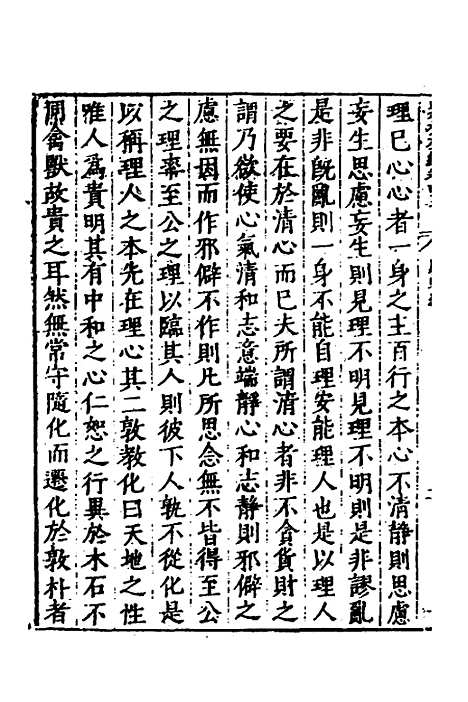 理己心心者一身之主百行之本心不清静則思慮
妄生思慮妄生則見理不明見理不明則是非謬亂
是非旣亂則一身不能自理安能理人也是以理人
之要在於清心而已夫所謂清心者非不貪貨財之
謂乃欲使心氣清和志意端静心和志静則邪僻之
慮無因而作邪僻不作則凡所思念無不皆得至公
之理率至公之理以臨其人則彼下人孰不從化是
以稱理人之本先在理心其二敦教化曰天地之性
惟人爲貴明其有中和之心仁恕之行異於木石不
同禽獸故貴之耳然無常守隨化而遷化於敦朴者